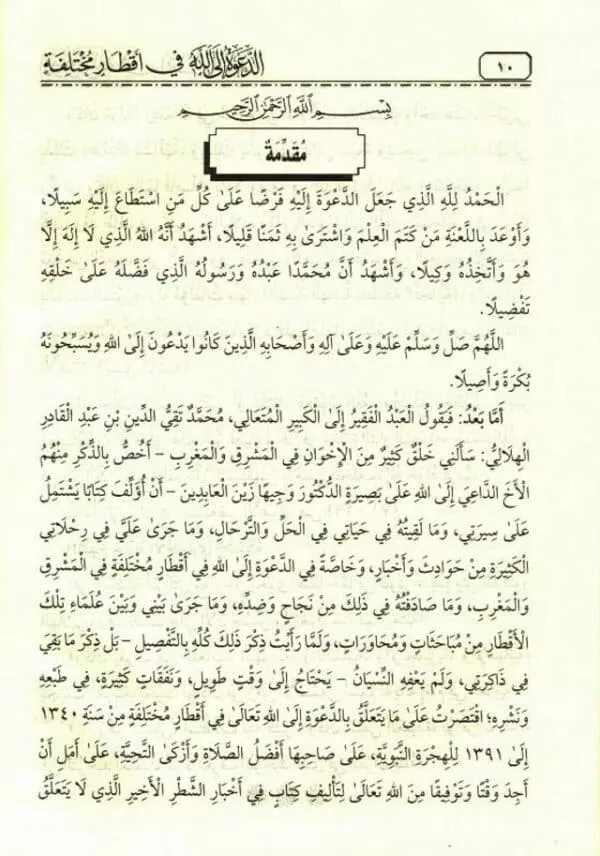 ١٠
الدَّعْوَةُ إِلَى اللَّهِ فِي أَقْطَارٍ مُخْتَلِفَةٍ
بِسْمِ اللَّهِ الرَّحْمَنِ الرَّحِيمِ
مُقَدِّمَةٌ
الْحَمْدُ لِلَّهِ الَّذِي جَعَلَ الدَّعْوَةَ إِلَيْهِ فَرْضًا عَلَىٰ كُلِّ مَنِ اسْتَطَاعَ إِلَيْهِ سَبِيلًا،
وَأَوْعَدَ بِاللَّعْنَةِ مَنْ كَتَمَ الْعِلْمَ وَاشْتَرَىٰ بِهِ ثَمَنًا قَلِيلًا، أَشْهَدُ أَنَّهُ اللهُ الَّذِي لَا إِلَهَ إِلَّا
هُوَ وَأَتَّخِذُهُ وَكِيلًا، وَأَشْهَدُ أَنَّ مُحَمَّدًا عَبْدُهُ وَرَسُولُهُ الَّذِي فَضَّلَهُ عَلَىٰ خَلْقِهِ
تَفْضِيلًا.
اللَّهُمَّ صَلِّ وَسَلِّمْ عَلَيْهِ وَعَلَىٰ آلِهِ وَأَصْحَابِهِ الَّذِينَ كَانُوا يَدْعُونَ إِلَى اللهِ وَيُسَبِّحُونَهُ
بُكْرَةً وَأَصِيلًا.
أَمَّا بَعْدُ: فَيَقُولُ الْعَبْدُ الْفَقِيرُ إِلَىٰ الْكَبِيرِ الْمُتَعَالِي، مُحَمَّدٌ تَقِيُّ الدِّينِ بْنِ عَبْدِ الْقَادِرِ
الْهِلَالِيُّ: سَأَلَنِي خَلْقٌ كَثِيرٌ مِنَ الْإِخْوَانِ فِي الْمَشْرِقِ وَالْمَغْرِبِ – أَخُصُّ بِالذِّكْرِ مِنْهُمُ
الْأَخَ الدَّاعِيَ إِلَى اللهِ عَلَىٰ بَصِيرَةٍ الدُّكْتُورَ وَجِيهًا زَيْنَ الْعَابِدِينَ – أَنْ أُؤَلِّفَ كِتَابًا يَشْتَمِلُ
عَلَىٰ سِيرَتِي، وَمَا لَقِيتُهُ فِي حَيَاتِي فِي الْحَلِّ وَالتَّرْحَالِ، وَمَا جَرَىٰ عَلَيَّ فِي رِحْلَاتِي
الْكَثِيرَةِ مِنْ حَوَادِثَ وَأَخْبَارٍ، وَخَاصَّةً فِي الدَّعْوَةِ إِلَى اللهِ فِي أَقْطَارٍ مُخْتَلِفَةٍ فِي الْمَشْرِقِ
وَالْمَغْرِبِ، وَمَا صَادَفْتُهُ فِي ذَلِكَ مِنْ نَجَاحٍ وَضِدِّهِ، وَمَا جَرَىٰ بَيْنِي وَبَيْنَ عُلَمَاءِ تِلْكَ
الْأَقْطَارِ مِنْ مُبَاحَثَاتٍ وَمُحَاوَرَاتٍ، وَلَمَّا رَأَيْتُ ذِكْرَ ذَلِكَ كُلِّهِ بِالتَّفْصِيلِ – بَلْ ذِكْرَ مَا بَقِيَ
فِي ذَاكِرَتِي، وَلَمْ يَعْفِهِ النِّسْيَانُ – يَحْتَاجُ إِلَىٰ وَقْتٍ طَوِيلٍ، وَنَفَقَاتٍ كَثِيرَةٍ، فِي طَبْعِهِ
وَنَشْرِهِ؛ اقْتَصَرْتُ عَلَىٰ مَا يَتَعَلَّقُ بِالدَّعْوَةِ إِلَى اللهِ تَعَالَىٰ فِي أَقْطَارٍ مُخْتَلِفَةٍ مِنْ سَنَةِ ١٣٤٠
إِلَىٰ ١٣٩١ لِلْهِجْرَةِ النَّبَوِيَّةِ، عَلَىٰ صَاحِبِهَا أَفْضَلُ الصَّلَاةِ وَأَزْكَىٰ التَّحِيَّةِ، عَلَىٰ أَمَلِ أَنْ
أَجِدَ وَقْتًا وَتَوْفِيقًا مِنَ اللهِ تَعَالَىٰ لِتَأْلِيفِ كِتَابٍ فِي أَخْبَارِ الشَّطْرِ الْأَخِيرِ الَّذِي لَا يَتَعَلَّقُ